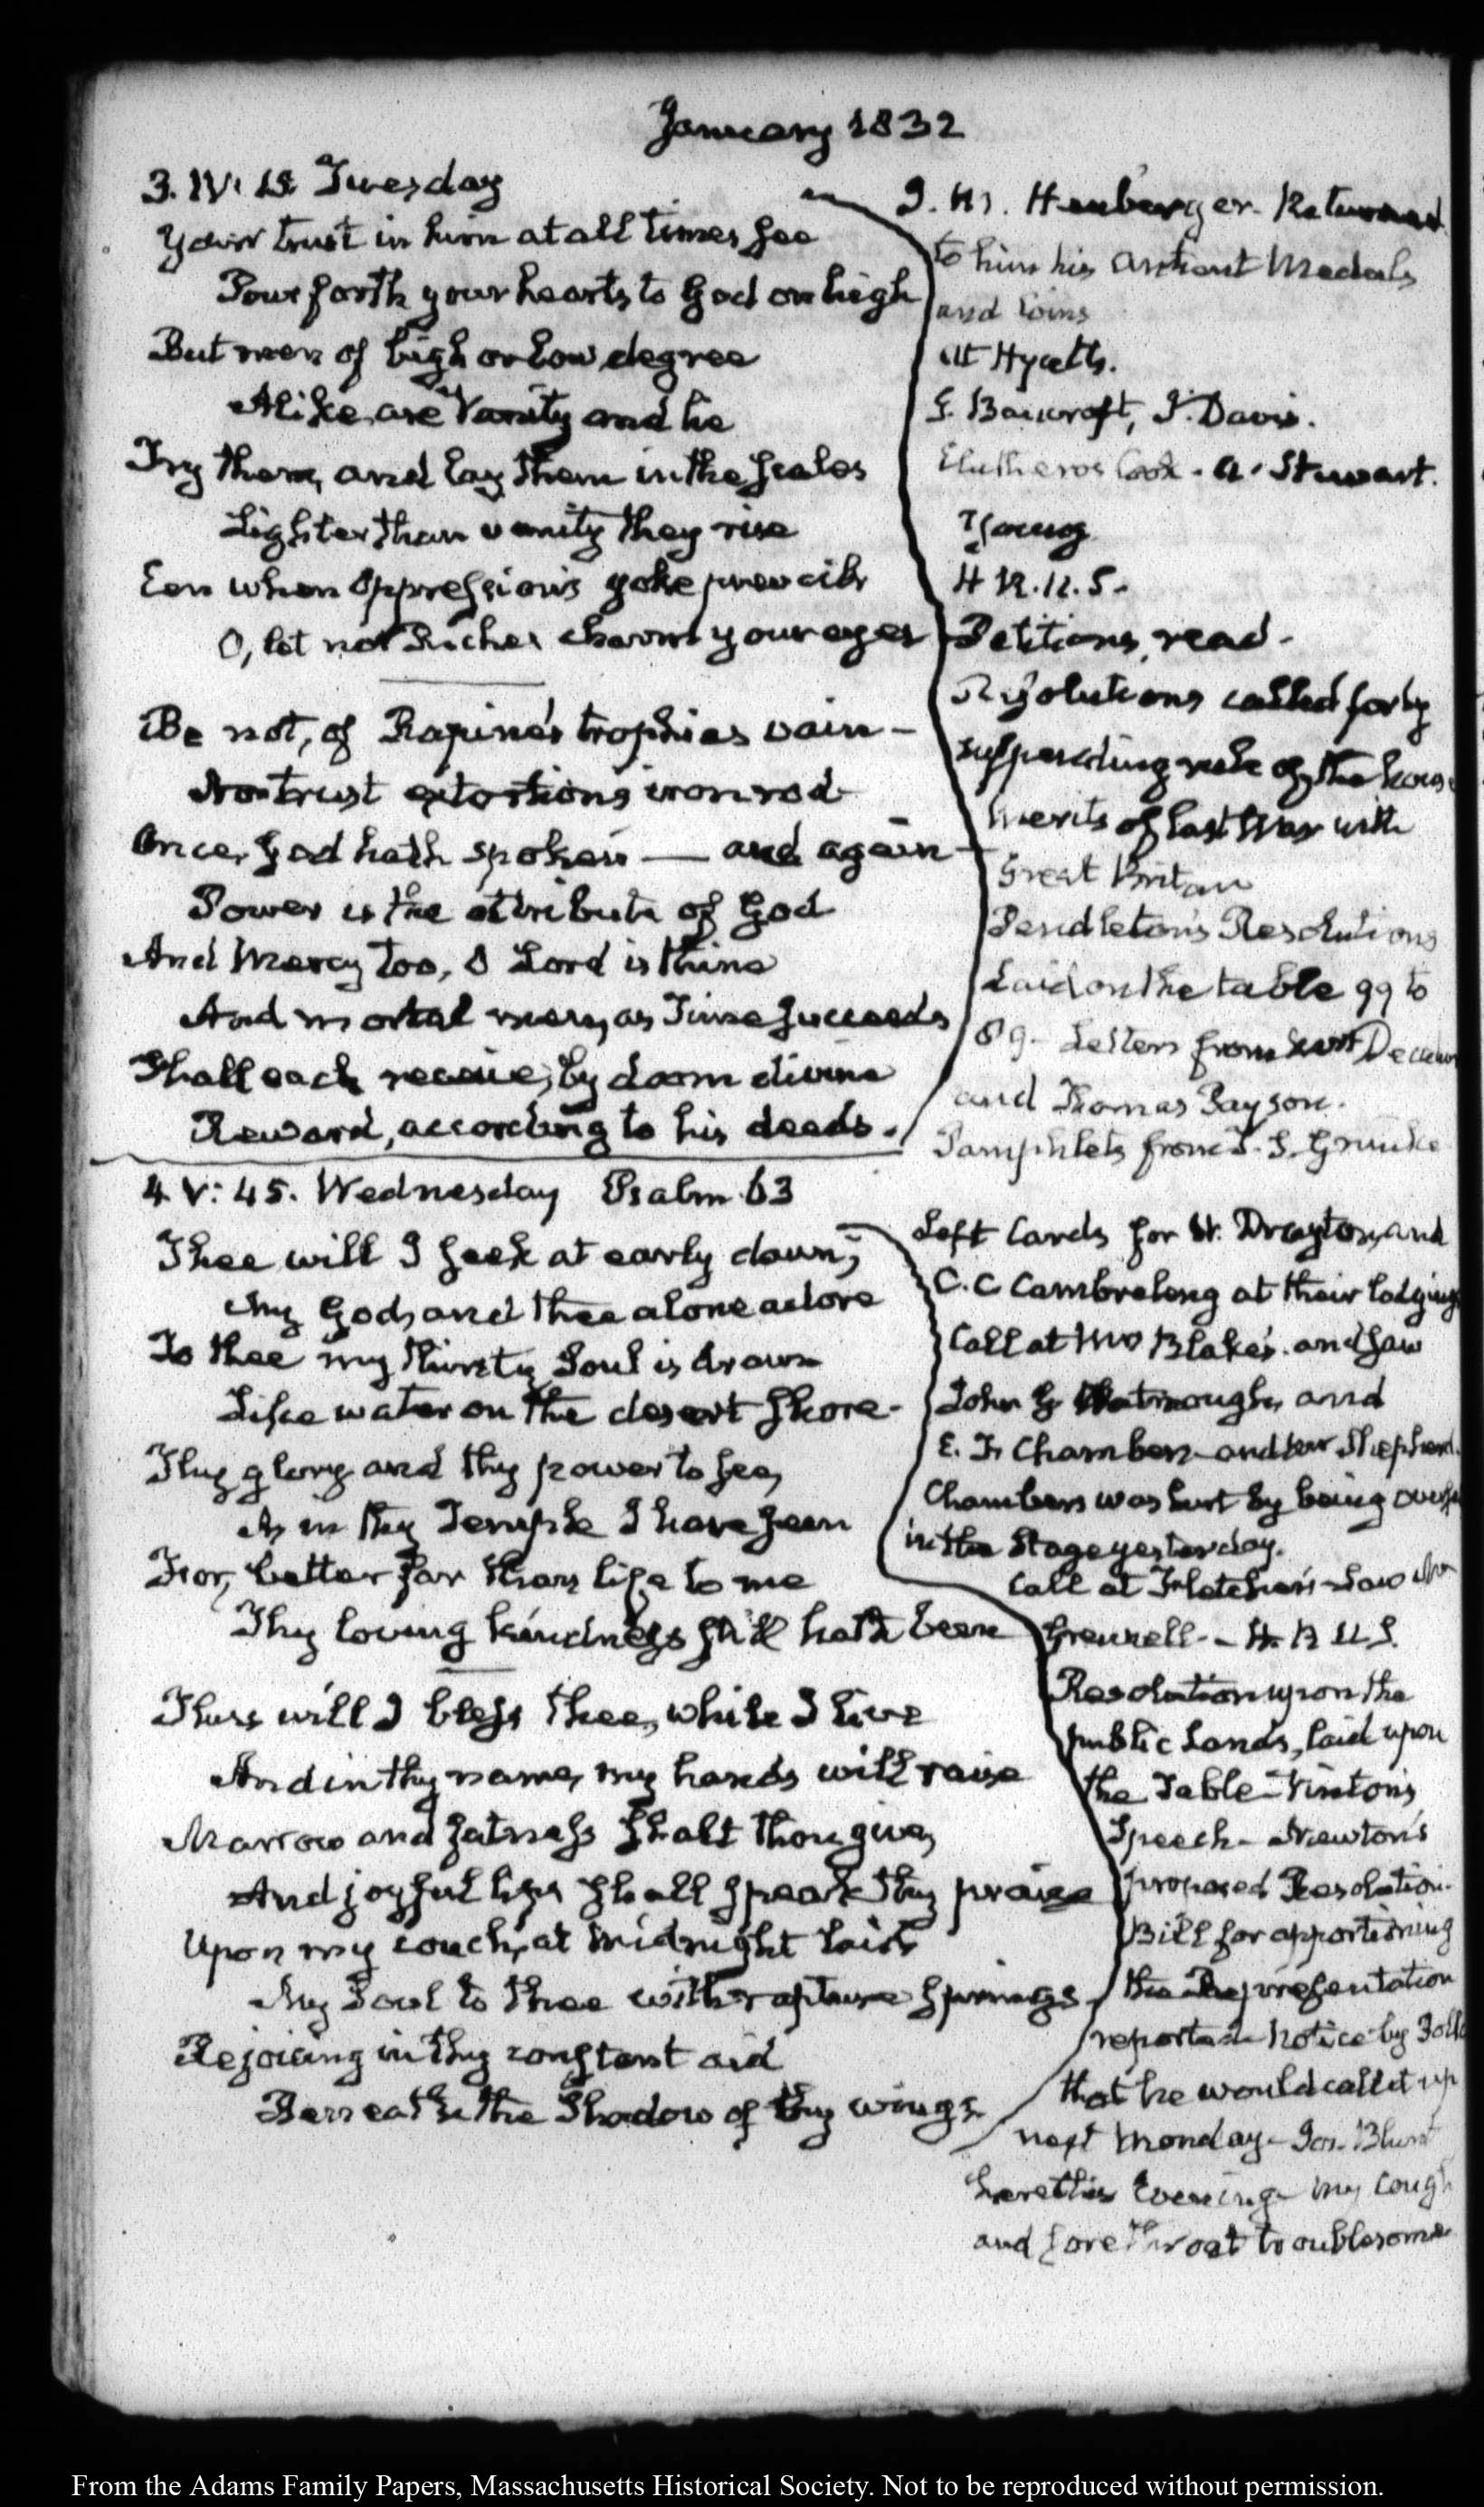 January 1832
3. IV: 15 Tuesday
Your trust in him at all times see
Pour forth your hearts to God on high
But men of high or low degree
Alike are Vanity and lie
Try them, and lay them in the scales
Lighter than vanity they rise
Een when Oppression's yoke prevails
O, let not Riches charm your eyes
Be not, of Rapine's trophies vain—
Nor trust extortion's iron rod
Once, God hath spoken — and again—
Power is the attribute of God
And Mercy too, O Lord is thine
And mortal men, as Time succeeds
Shall each receive, by doom divine
Reward, according to his deeds.
J. M. Henberger. Returned
to him his Antient Medals
and Coins
at Hyatt's.
G. Bancroft, J. Davis.
Elutheros Cook - A. Stewart.
Young
H R.U.S.
Petitions, read.
Resolutions called for by
suspending rule of the house
Merits of last War with
Great Britain
Pendleton's Resolutions
Laid on the table 99 to
89. Letters from
and Thomas Payson.
Pamphlets from T. S. Grimke
4. V: 45. Wednesday Psalm 63
Thee will I seek at early dawn;
My God, and thee alone adore
To thee my thirsty Soul is drawn
Like water on the desert shore.
Thy glory and thy power to see,
As in thy Temple I have seen
For, better far than life to me
Thy loving kindness still hath been
Thus will I bless thee, while I live
And in thy name, my hands will raise
Marrow and fatness shalt thou give,
And joyful lips shall speak thy praise
Upon my couch, at midnight laid
My Soul to thee with rapture springs
Rejoicing in thy constant aid
Beneath the Shadow of thy wings
Left Cards for W. Drayton, and
C. C Cambreleng at their lodgings
Call at Mrs Blake's. and saw
John G Watmough, and
E. F. Chambers and Shepherd.
Chambers was hurt by being
in the Stage yesterday.
Call at Fletcher's—Saw Mr
Grennell—H. R U.S.
Resolution upon the
public Lands, laid upon
the Table—Vinton's
Speech—Newton's
proposed Resolution.
Bill for apportioning
the Representation
reported—Notice by Polk
that he would call it up
next Monday—Jos. Blunt
here this Evening—My Cough
and sore throat troublesome
From the Adams Family Papers, Massachusetts Historical Society. Not to be reproduced without permission.